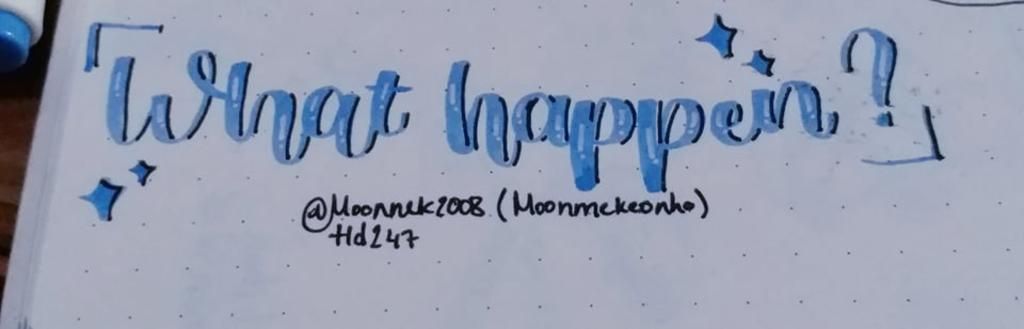 「What happen?」
@Moonnek2008 (Moonmekeonho)
Hd247